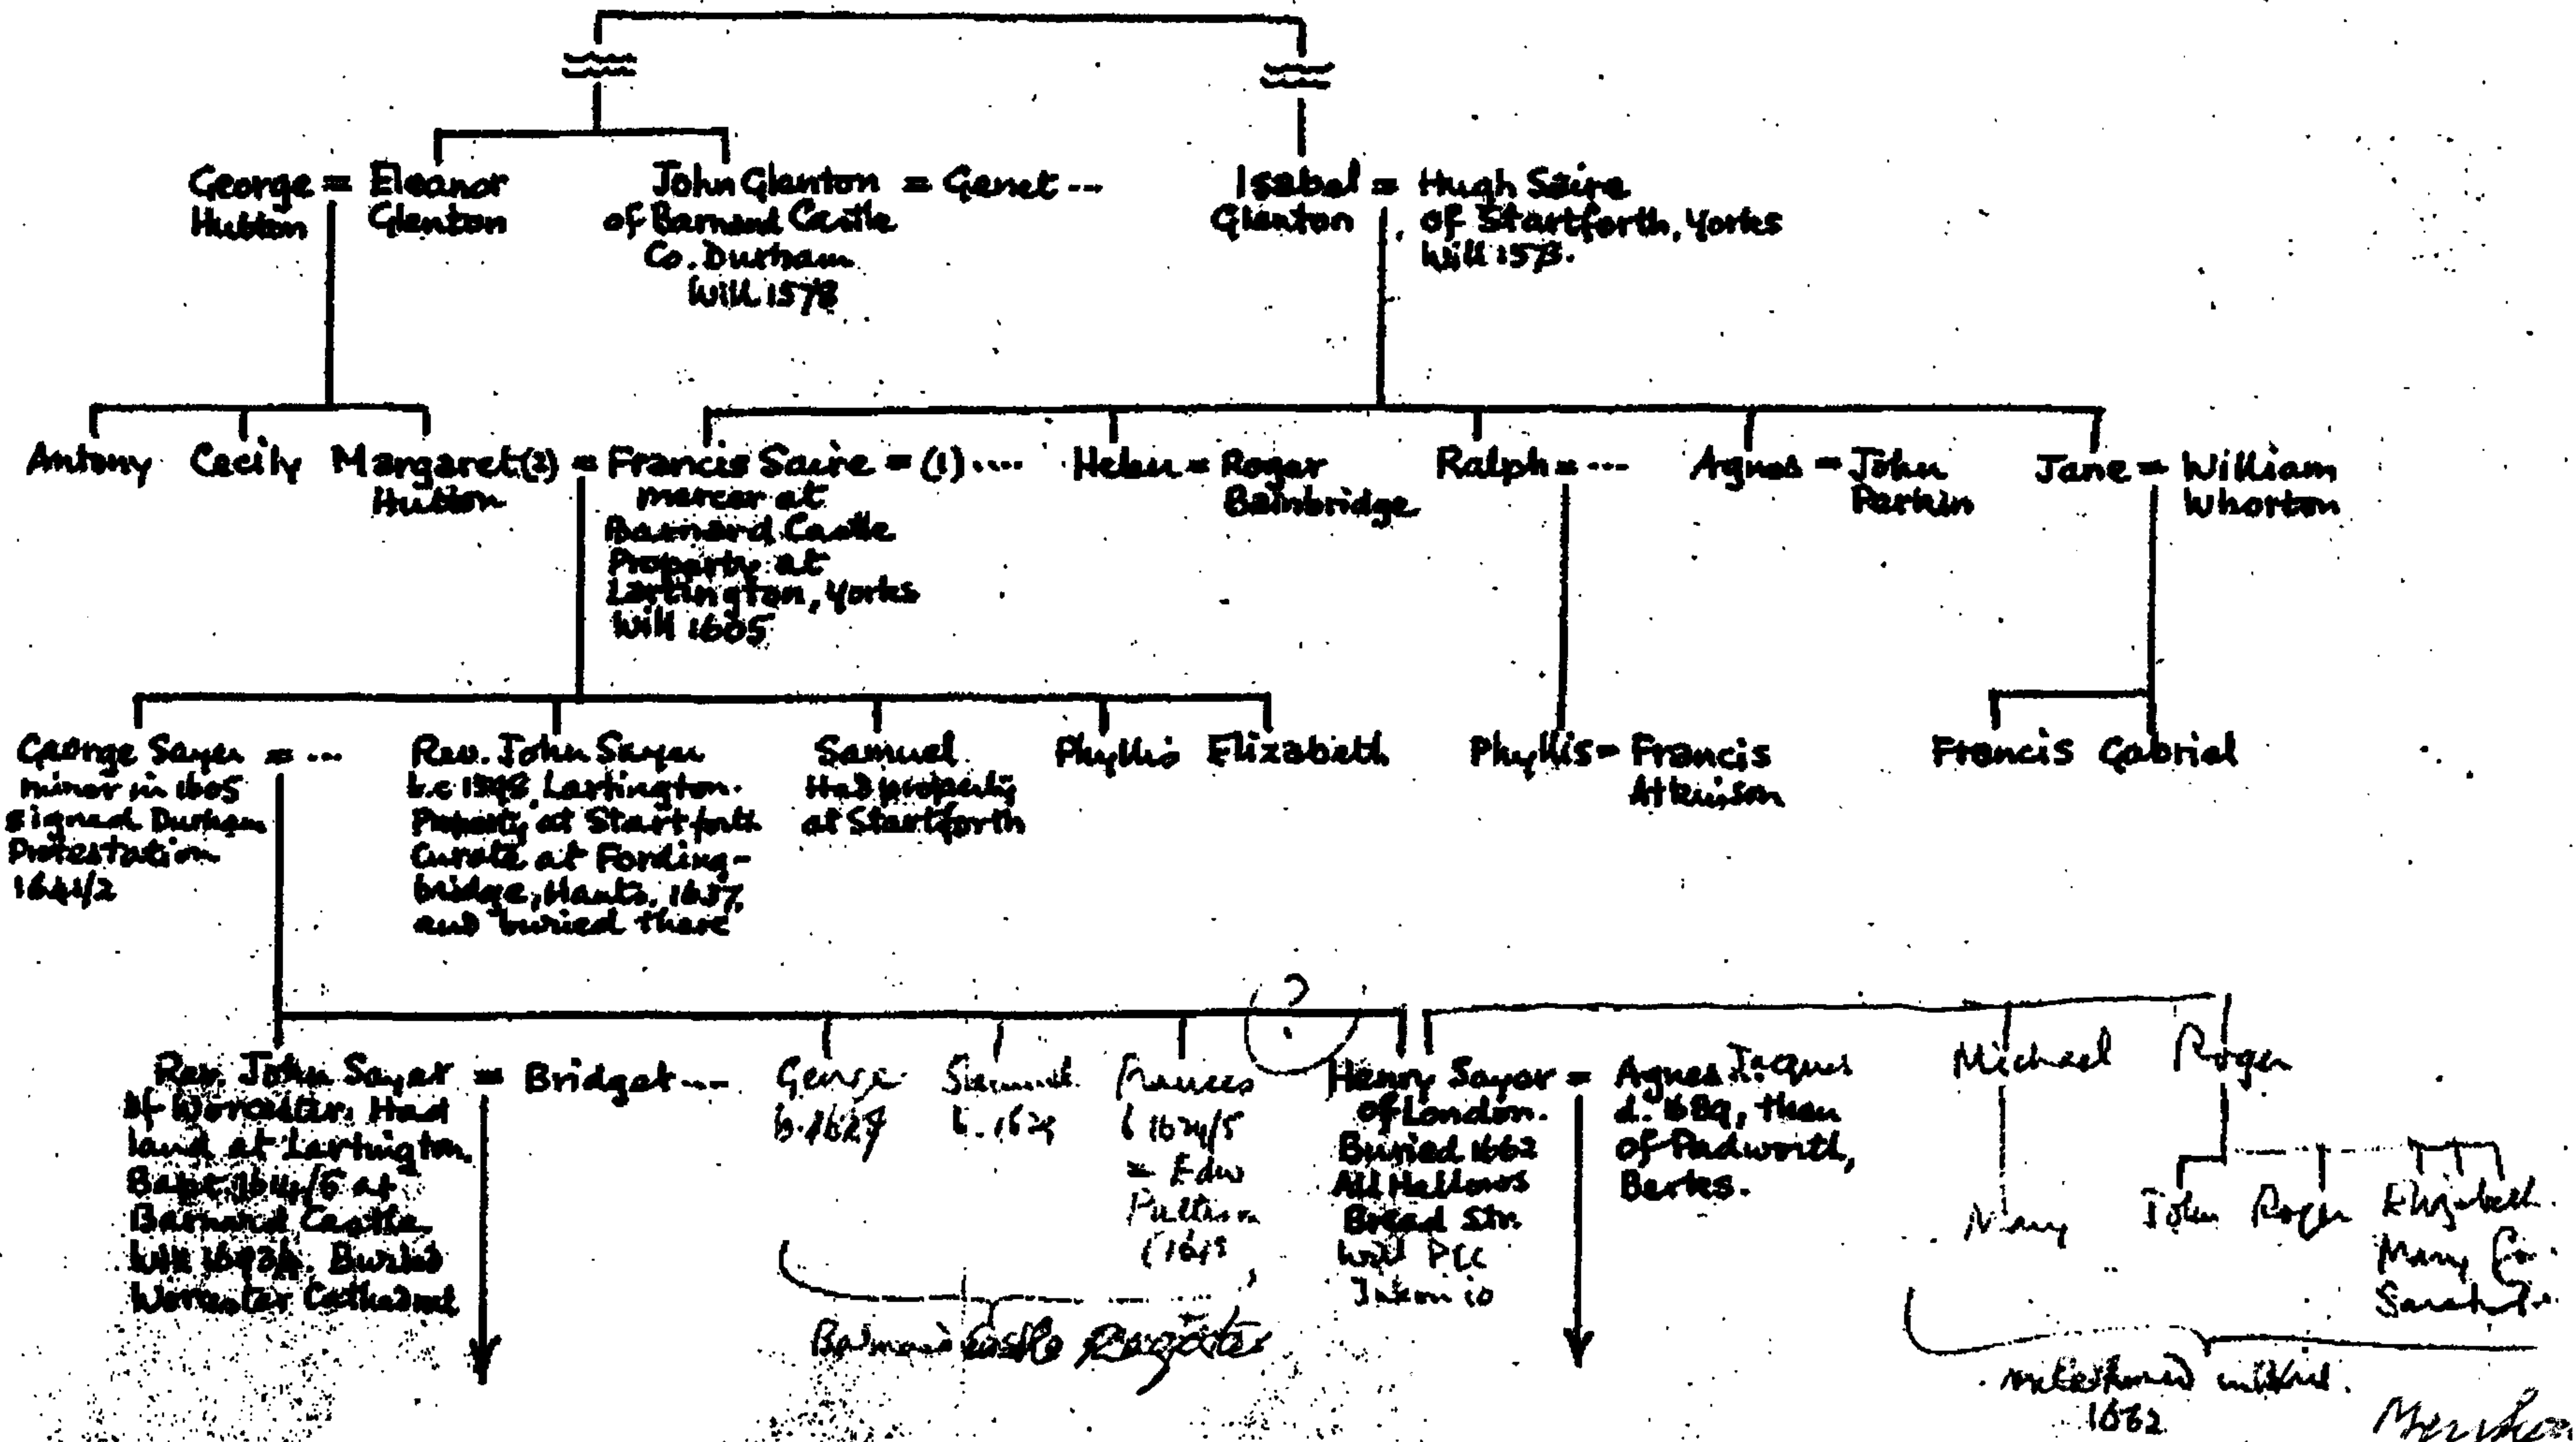 George = Eleanor
Hutton Glenton
John Glenton = Genet ...
of Barnard Castle
Co. Durham
Will 1578
Isabel = Hugh Saire
Glenton of Startforth, Yorks
Will 1573.
Antony Cecily Margaret (2) = Francis Saire = (1) ....
Hutton
mercer at
Barnard Castle
Property at
Lartington, Yorks
Will 1605
Helen = Roger
Bainbridge
Ralph = ...
Agnes = John
Parkin
Jane = William
Whorton
George Sayer = ...
minor in 1605
signed Durham
Protestation
1641/2
Rev. John Sayer
b.c 1598 Lartington.
Property at Startforth
Curate at Fording-
bridge, Hants, 1637,
and buried there
Samuel.
Had property
at Startforth
Phyllis Elizabeth
Phyllis = Francis
Atkinson
Francis Gabriel
?
Rev. John Sayer = Bridget ...
of Worcester. Had
land at Lartington.
Bapt. at
Barnard Castle
Will Buried
Worcester Cathedral
George
b. 1627
Samuel
b.
Frances
b
= Edw
Barnard Castle Register
Henry Sayer = Agnes Jacques
of London.
Buried 1662
All Hallows
Bread Str.
Will PCC
d. 1689, then
of Padworth,
Berks.
Michael Roger
Mary
John Roger Elizabeth
Mary
Sarah
mentioned in
1662